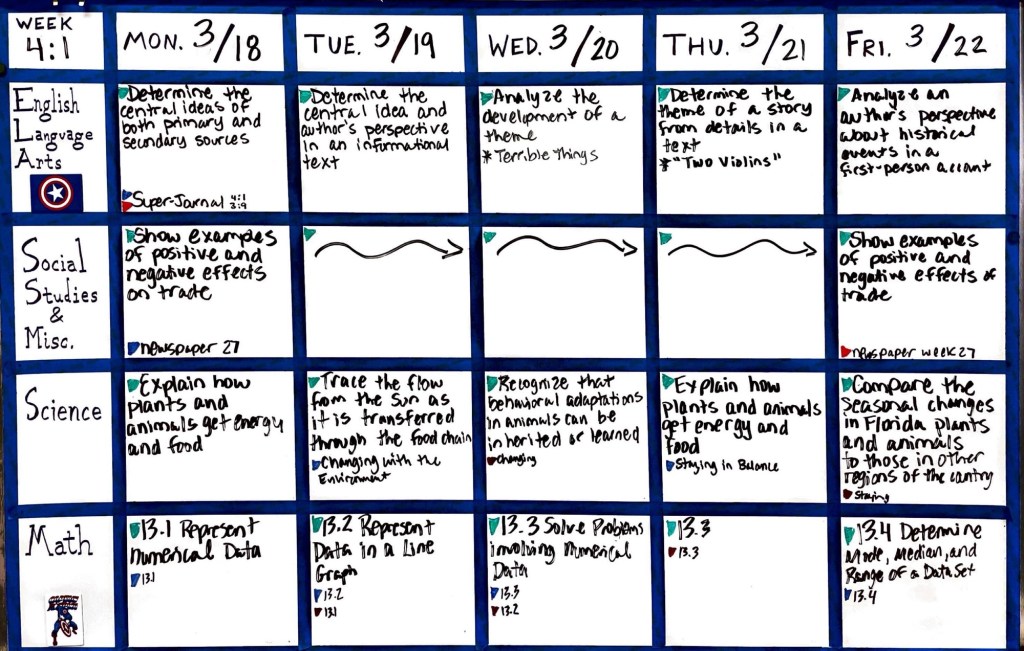 WEEK
4:1
MON. 3/18
TUE. 3/19
WED. 3/20
THU. 3/21
FRI. 3/22
English
Language
Arts
Determine the
central ideas of
both primary and
secondary sources
Super-Journal 4:1
3:9
Determine the
central idea and
author's perspective
in an informational
text
Analyze the
development of a
theme
*Terrible Things
Determine the
theme of a story
from details in a
text
*"Two Violins"
Analyze an
author's perspective
about historical
events in a
first-person account
Social
Studies
&
Misc.
Show examples
of positive and
negative effects
on trade
newspaper 27
Show examples
of positive and
negative effects of
trade
newspaper week 27
Science
Explain how
plants and
animals get energy
and food
Trace the flow
from the sun as
it is transferred
through the food chain
Changing with the
Environment
Recognize that
behavioral adaptations
in animals can be
inherited or learned
changing
Explain how
plants and animals
get energy and
food
Staying in Balance
Compare the
seasonal changes
in Florida plants
and animals
to those in other
regions of the country
Staying
Math
13.1 Represent
Numerical Data
13.1
13.2 Represent
Data in a Line
Graph
13.2
13.1
13.3 Solve Problems
involving Numerical
Data
13.3
13.2
13.3
13.3
13.4 Determine
Mode, Median, and
Range of a Data Set
13.4